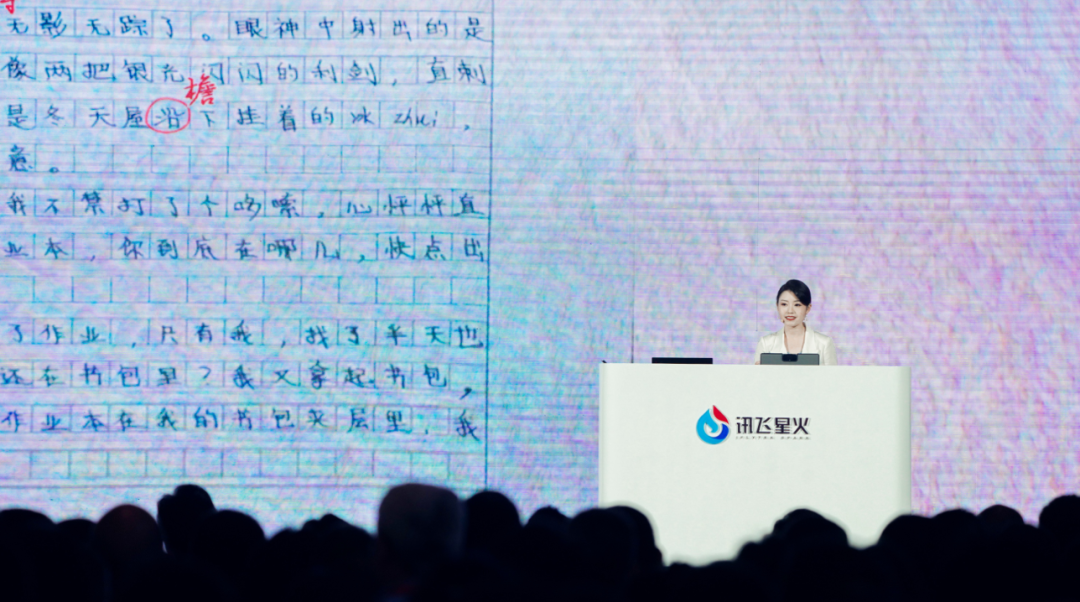 无影无踪了。眼神中射出的是
像两把银光闪闪的利剑，直刺
檐
是冬天屋沿下挂着的冰zhui，
意。
我不禁打了个哆嗦，心怦怦直
业本，你到底在哪儿，快点出
了作业，只有我，找了半天也
还在书包里？我又拿起书包，
作业本在我的书包夹层里，我
讯飞星火